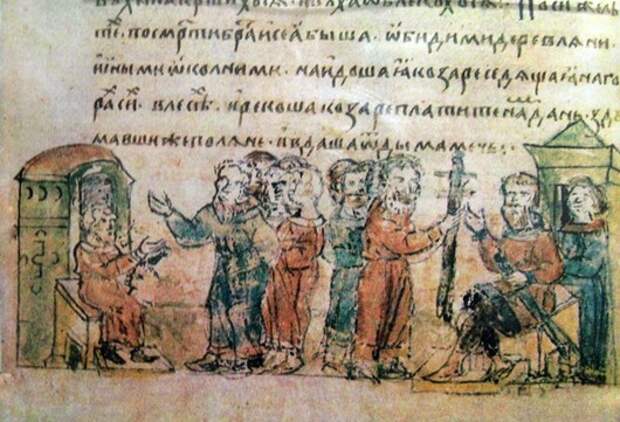 По си же лѣ
те. по смрти браи сеа быша. ѡбидими деревлѧни.
иными ѡколними. наидоша ꙗ козаре седѧщаꙗ на го
ра си. в лесѣ. и рекоша козаре платите на дань. здꙋ
мавши же поляне. и вдаша ѿ дыма мечь: